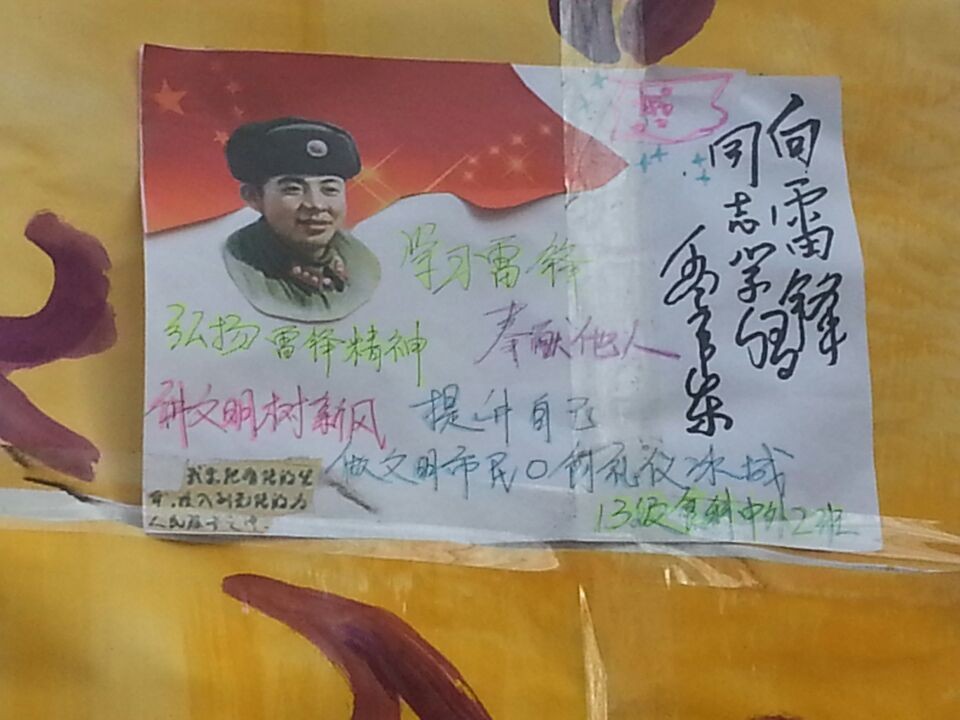 向雷锋
同志学习
毛泽东
学习雷锋
弘扬雷锋精神
奉献他人
讲文明树新风
提升自己
做文明市民
礼仪冰城
我要把有限的生
命,投入到无限的为
人民服务之中。
13级食科中外2班